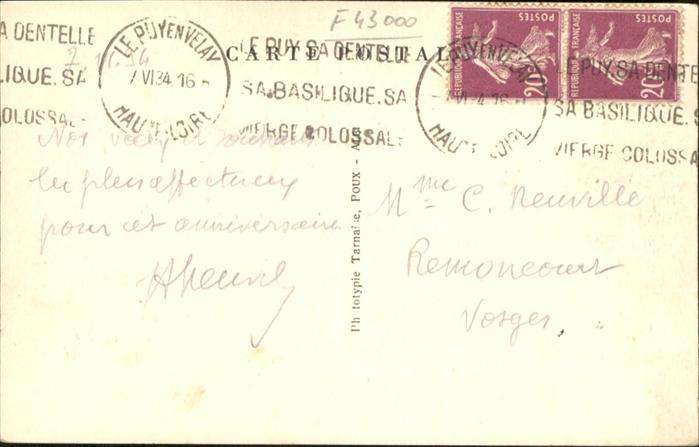 F 43000
A DENTELLE
LIQUE. SA
COLOSSALE
LE PUY EN VELAY
7 VI 34 16
HAUTE-LOIRE
LE PUY. SA DENTELLE
SA BASILIQUE. SA
VIERGE COLOSSALE
CARTE POSTALE
LE PUY EN VELAY
HAUTE-LOIRE
LE PUY. SA DENTE
SA BASILIQUE. S
VIERGE COLOSSA
REPUBLIQUE FRANÇAISE
POSTES
20c
REPUBLIQUE FRANÇAISE
POSTES
20c
Nos vœux
les plus affectueux
pour cet anniversaire
Phototypie Tarnaise, POUX -
Mme C. Neuville
Remoncourt
Vosges